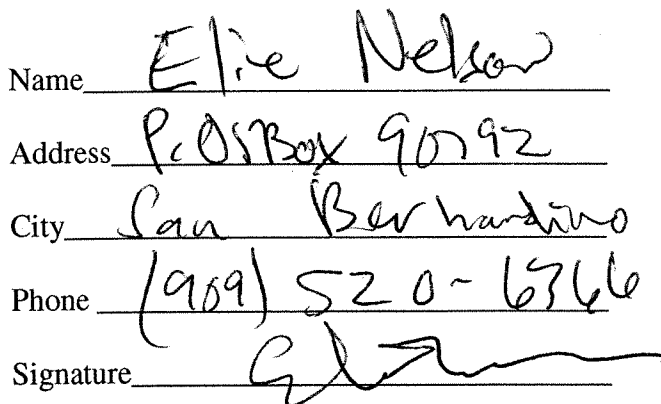 Name Elie Nelson
Address P.O. Box 90792
City San Bernardino
Phone (909) 520-6366
Signature